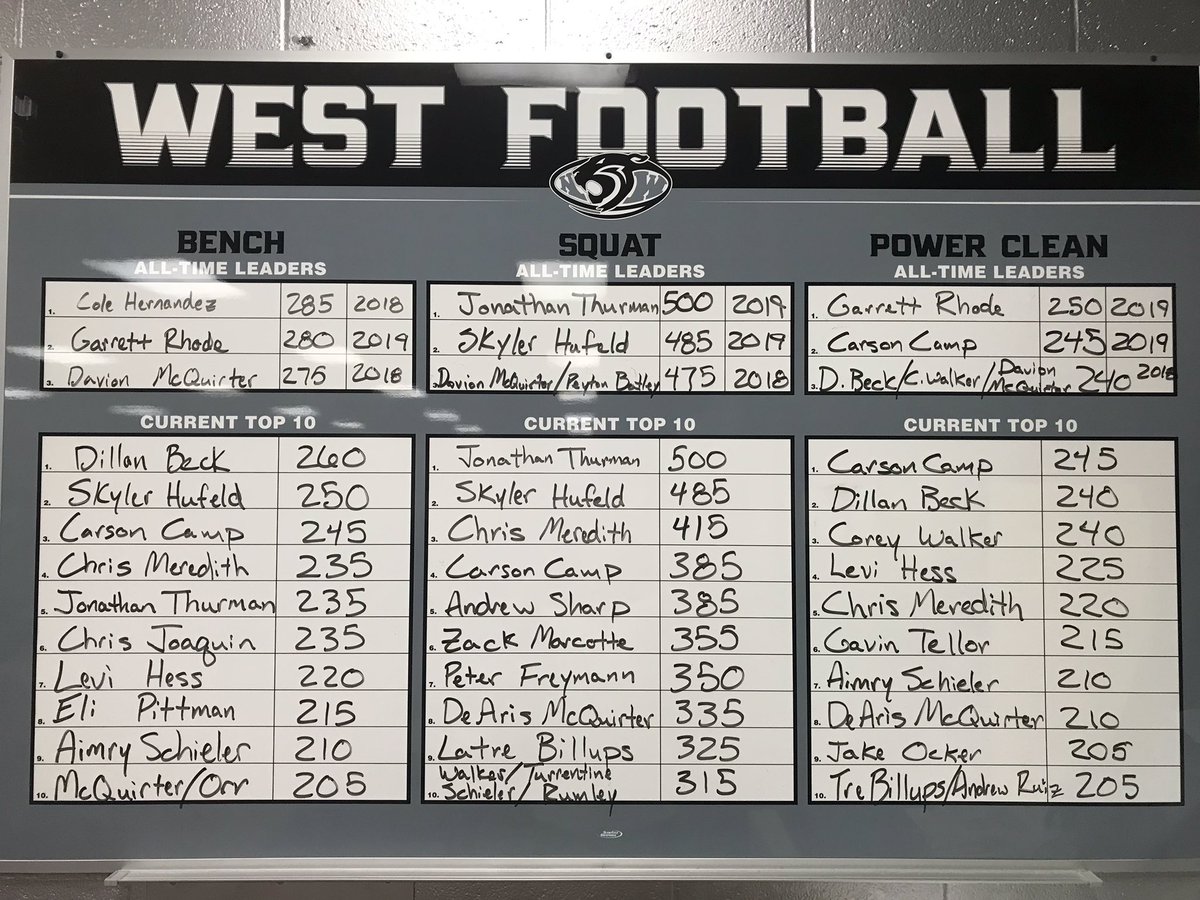 WEST FOOTBALL
N W
BENCH
ALL-TIME LEADERS
1. Cole Hernandez 285 2018
2. Garrett Rhode 280 2019
3. Davion McQuirter 275 2018
CURRENT TOP 10
1. Dillan Beck 260
2. Skyler Hufeld 250
3. Carson Camp 245
4. Chris Meredith 235
5. Jonathan Thurman 235
6. Chris Joaquin 235
7. Levi Hess 220
8. Eli Pittman 215
9. Aimry Schieler 210
10. McQuirter/Orr 205
SQUAT
ALL-TIME LEADERS
1. Jonathan Thurman 500 2019
2. Skyler Hufeld 485 2019
3. Davion McQuirter/Peyton Batley 475 2018
CURRENT TOP 10
1. Jonathan Thurman 500
2. Skyler Hufeld 485
3. Chris Meredith 415
4. Carson Camp 385
5. Andrew Sharp 385
6. Zack Marcotte 355
7. Peter Freymann 350
8. DeAris McQuirter 335
9. Latre Billups 325
10. Walker/Turrentine
Schieler/Rumley 315
POWER CLEAN
ALL-TIME LEADERS
1. Garrett Rhode 250 2019
2. Carson Camp 245 2019
3. D. Beck/C. Walker/Davion
McQuirter 240 2018
CURRENT TOP 10
1. Carson Camp 245
2. Dillan Beck 240
3. Corey Walker 240
4. Levi Hess 225
5. Chris Meredith 220
6. Gavin Tellor 215
7. Aimry Schieler 210
8. DeAris McQuirter 210
9. Jake Ocker 205
10. Tre Billups/Andrew Ruiz 205